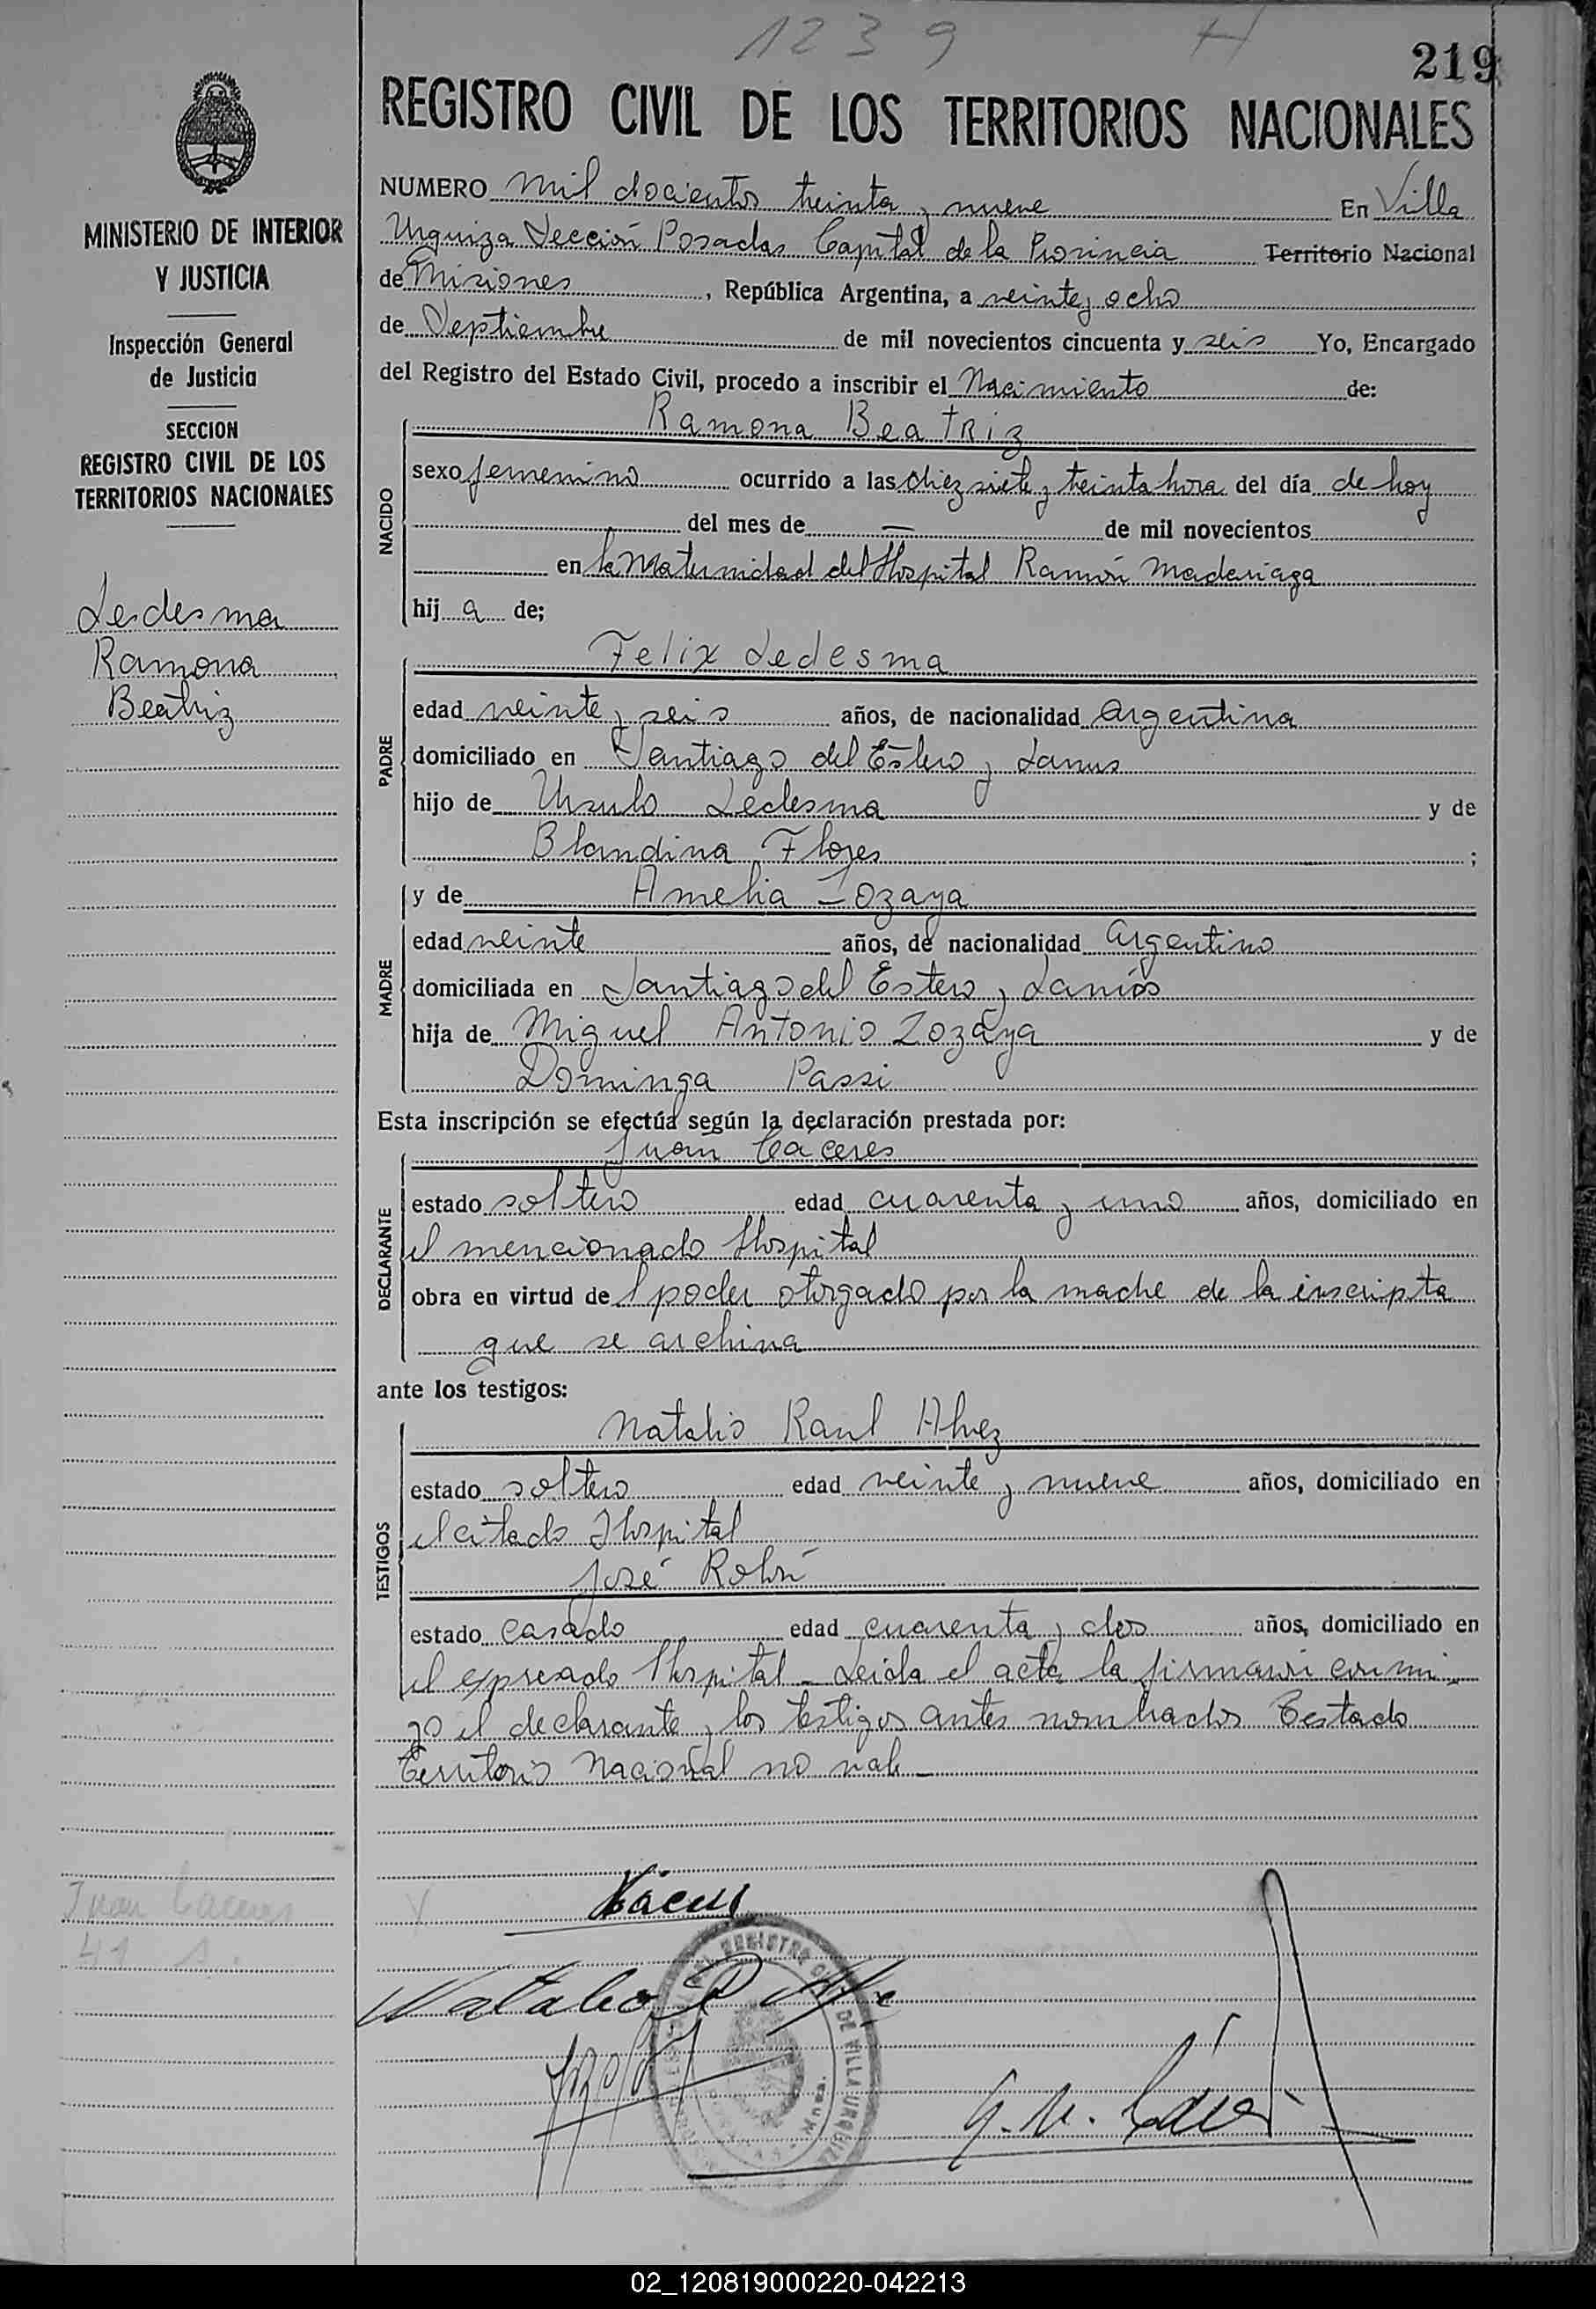 1239 H
219
REGISTRO CIVIL DE LOS TERRITORIOS NACIONALES
MINISTERIO DE INTERIOR
Y JUSTICIA
Inspección General
de Justicia
SECCION
REGISTRO CIVIL DE LOS
TERRITORIOS NACIONALES
Ledesma
Ramona
Beatriz
NUMERO mil docientos treinta y nueve En Villa
Urquiza Sección Posadas Capital de la Provincia Territorio Nacional
de Misiones, República Argentina, a veinte y ocho
de Septiembre de mil novecientos cincuenta y seis Yo, Encargado
del Registro del Estado Civil, procedo a inscribir el Nacimiento de:
NACIDO
Ramona Beatriz
sexo femenino ocurrido a las diez siete y treinta hora del día de hoy
del mes de — de mil novecientos
en la Maternidad del Hospital Ramón Madariaga
hij a de;
PADRE
Felix Ledesma
edad veinte y seis años, de nacionalidad Argentina
domiciliado en Santiago del Estero y Lanus
hijo de Ursulo Ledesma y de
Blandina Flores ;
MADRE
y de Amelia Zozaya
edad veinte años, de nacionalidad Argentino
domiciliada en Santiago del Estero y Lanús
hija de Miguel Antonio Zozaya y de
Dominga Passi
Esta inscripción se efectúa según la declaración prestada por:
DECLARANTE
Juan Caceres
estado soltero edad cuarenta y uno años, domiciliado en
el mencionado Hospital
obra en virtud de l poder otorgado por la madre de la inscripta
que se archiva
ante los testigos:
TESTIGOS
Natalio Raul Alvez
estado soltero edad veinte y nueve años, domiciliado en
el citado Hospital
José Rolón
estado casado edad cuarenta y dos años, domiciliado en
el expresado Hospital - Leida el acta la firmaron conmi
go el declarante y los testigos antes nombrados Testado
Territorio Nacional no vale -
Juan Caceres
41 s.
Cáceres
Natalio R
REGISTRO
DE VILLA URQUIZA
02_120819000220-042213